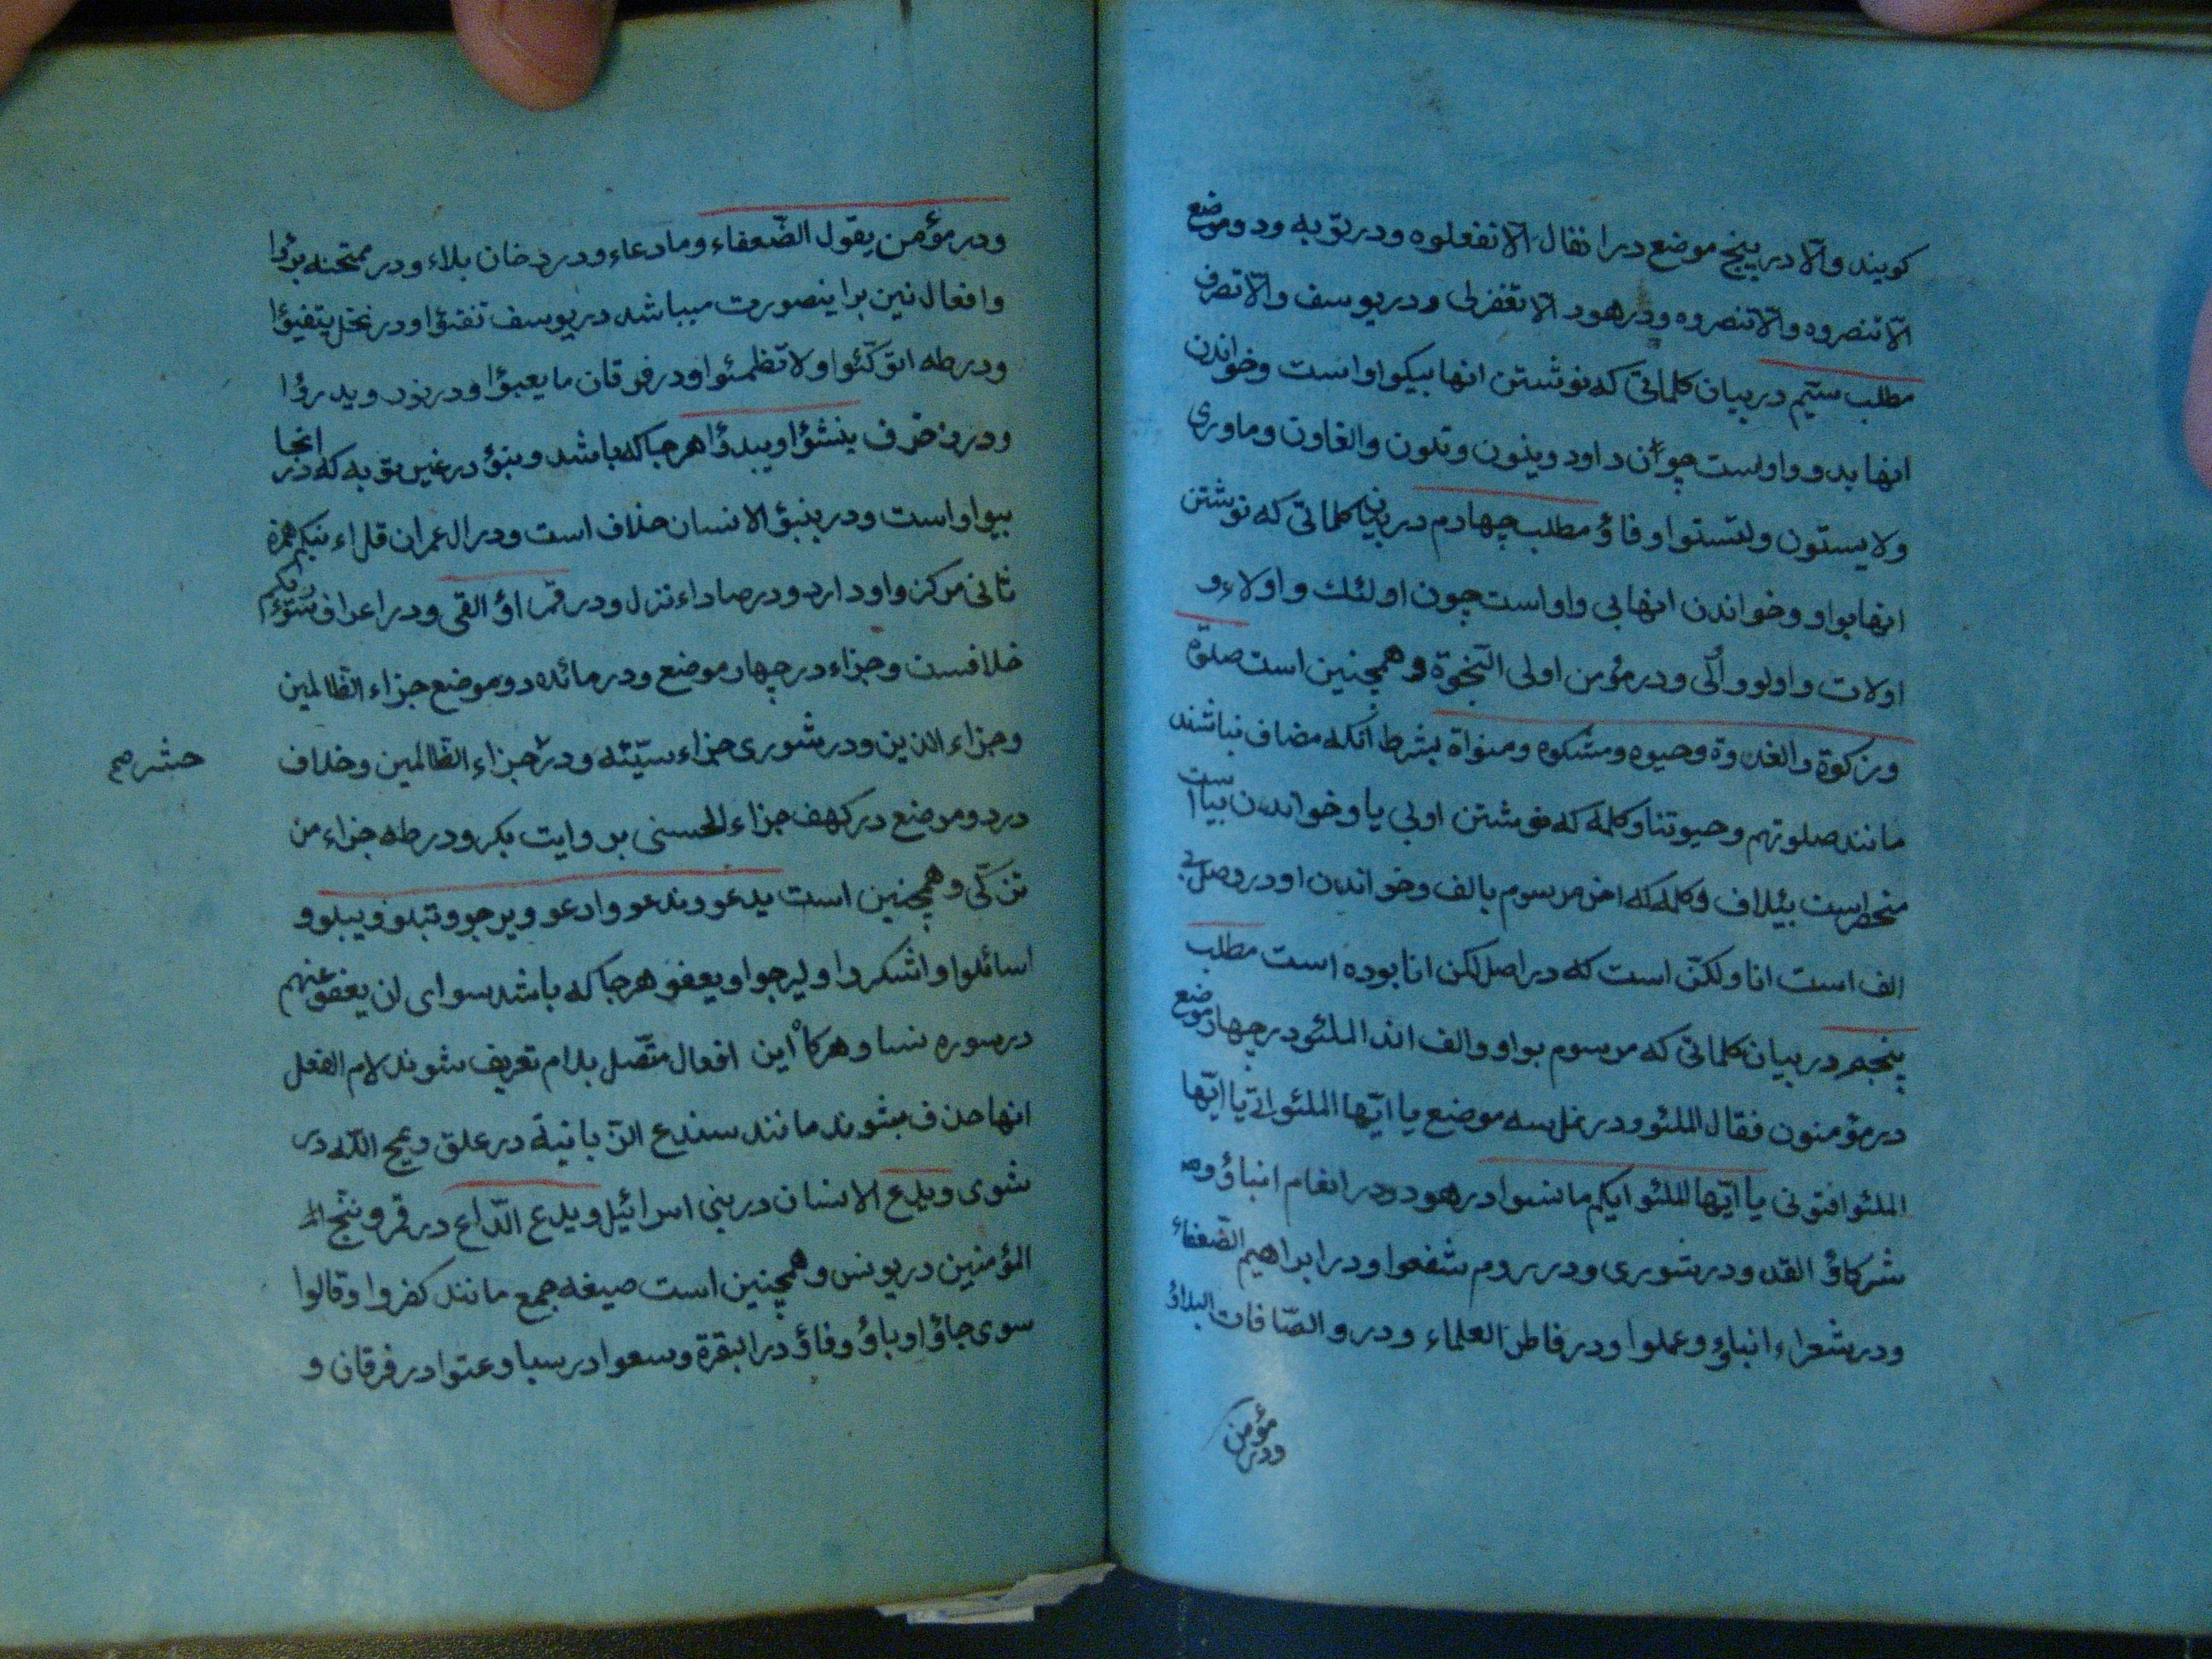 کویند والّا در پنج موضع در انفال الّا تفعلوه ودر توبه ودو موضع
الّا تنصروه والّا تنصروه ودر هود الّا تغفرلی ودر یوسف والّا تصرف
مطلب سیّم در بیان کلماتی که نوشتن انها بیکواو است وخواندن
انها بدو واو است چون داود وینون وتلون والغاون وماوری
ولایستون ولتستوا وفاؤ مطلب چهارم در بیان کلماتی که نوشتن
انها بواو وخواندن انها بی واو است چون اولئك واولاء و
اولات واولو واُلی ودر مؤمن اولی النّجوة وهمچنین است صلوة
وزکوة والغدوة وحیوه ومشکوه ومنواة بشرط آنکه مضاف نباشند
مانند صلوتهم وحیوتنا وکلمه که نوشتن اوبی یا وخواندن بیا است
منحصر است بئیلاف وکلمه که اخر مرسوم بالف وخواندن او در وصل بی
الف است انا ولکنّ است که در اصل لکن انا بوده است مطلب
پنجم در بیان کلماتی که مرسوم بواو والف اند الملئو در چهار موضع
در مؤمنون فقال الملئو ودر نمل سه موضع یا ایّها الملئو انّی یا ایّها
الملئو افتونی یا ایّها الملئو ایکم مانشوا در هود ودر انعام انباؤ و
شرکاؤ القد ودر شوری ودر روم شفعوا ودر ابراهیم الضّعفاء
ودر شعراء انباؤ وعملوا ودر فاطر العلماء ودر والصّافات البلاؤ
ودر مؤمن
ودر مؤمن یقول الضّعفاء وما دعاء ودر دخان بلاء ودر ممتحنه برؤا
وافعال نیز براینصورت میباشد در یوسف تفتؤا ودر نحل یتفیؤا
ودر طه اتوکّئوا ولا تظمئوا ودر فرقان ما یعبؤا ودر نور ویدرؤا
ودر زخرف ینشؤا ویبدؤا هرجا که باشد ونبؤ در غیر توبه که در انجا
بیواو است ودر ینبؤ الانسان خلاف است ودر ال عمران قل اء نبکم همزه
ثانی مرکز واو دارد ودر صاد اء نزل ودر قمر اؤ القی ودر اعراف
خلافست وجزاء در چهار موضع ودر مائده دو موضع جزاء الظالمین
وجزاء الذین ودر شوری جزاء سیّئه ودر حشر جزاء الظّالمین وخلاف
حشر صح
در دو موضع در کهف جزاء الحسنی بروایت بکر ودر طه جزاء من
تزکّی وهمچنین است یدعو وندعو وادعو ویرجو وتبلو ویبلو و
اسائلوا واشکروا ولیرجوا ویعفو هرجا که باشد سوای ان یعفو عنهم
در سوره نسا وهرکاْه این افعال متّصل بلام تعریف شوند لام الفعل
انها حذف میشوند مانند سندع الزّبانیة در علق ویمح اللّه در
شوی ویدع الانسان در بنی اسرائیل ویدع الدّاع در قمر وننج
المؤمنین در یونس وهمچنین است صیغه جمع مانند کفروا وقالوا
سوی جاؤ اوباؤ وفاؤ در البقرة وسعوا در سبا وعتوا در فرقان و